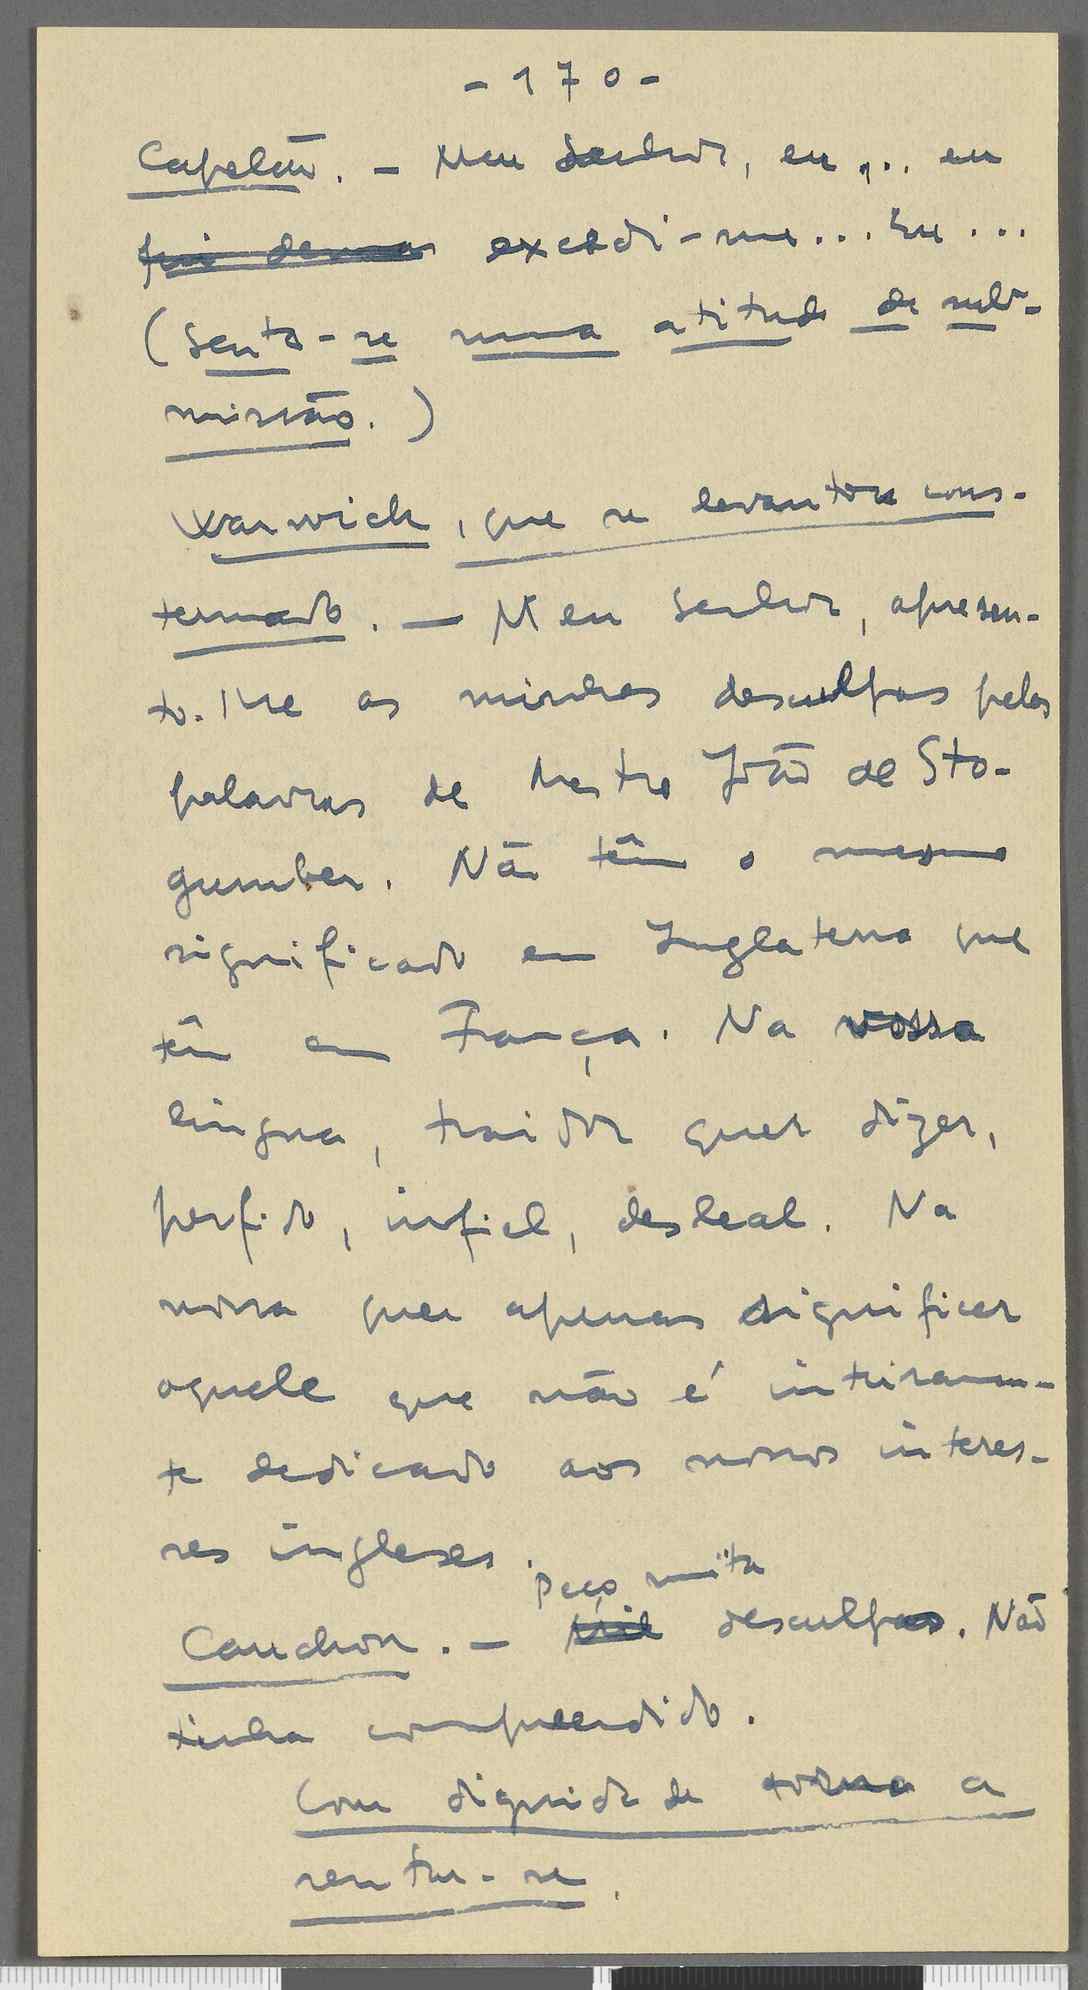 - 170 -
Capelão. - Meu Senhor, eu... eu
fui demas excedi-me... Eu...
(Senta-se numa atitude de sub-
missão.)
Warwick, que se levantou cons-
ternado. - Meu Senhor, apresen-
to-lhe as minhas desculpas pelas
palavras de Mestre João de Sto-
gumber. Não têm o mesmo
significado em Inglaterra que
têm em França. Na vossa
língua, traidor quer dizer,
perfido, infiel, desleal. Na
nossa quer apenas significar
aquele que não é inteiramen-
te dedicado aos nossos interes-
ses ingleses.
Peço muita
Cauchon. - Mil desculpas. Não
tinha compreendido.
Com dignidade torna a
sentar-se.